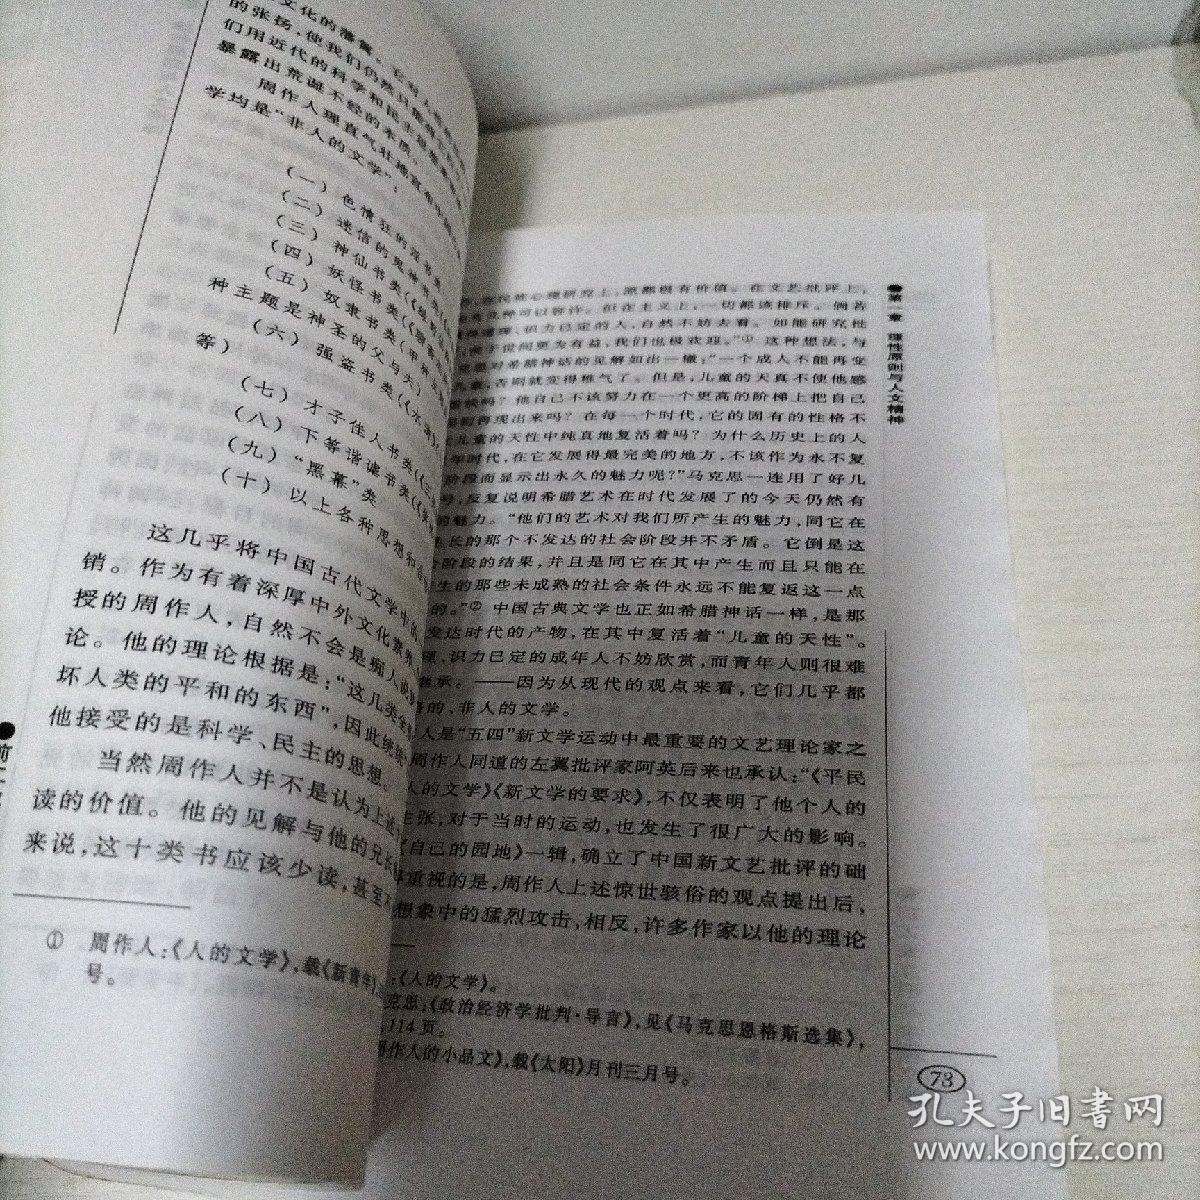 文化的落
的张扬，使我们仍然只能
们用近代的科学和民主思想
暴露出荒诞不经的本质。
周作人理直气壮地宣布
学均是“非人的文学”：
（一）色情狂的淫书类
（二）迷信的鬼神书类
（三）神仙书类
（四）妖怪书类
（五）奴隶书类（甲种
种主题是神圣的父与夫
（六）强盗书类（《水浒》
等）
（七）才子佳人书类（《三
（八）下等谐谑书类
（九）“黑幕”类
（十）以上各种思想和
这几乎将中国古代文学中的
销。作为有着深厚中外文化素养
授的周作人，自然不会是痴人说
论。他的理论根据是：“这几类全
坏人类的平和的东西”，因此
他接受的是科学、民主的思想。
当然周作人并不是认为上述
读的价值。他的见解与他的兄长
来说，这十类书应该少读，甚至不
① 周作人：《人的文学》，载《新青年》
号。
●前工
●第一章 理性原则与人文精神
在民族心理研究上，原都极有价值。在文艺批评上，
几种可以容许。但在主义上，一切都该排斥。倘若
道理、识力已定的人，自然不妨去看。如能研究批
便于世间更为有益，我们也极欢迎。”①这种想法，与
克思对希腊神话的见解如出一辙：“一个成人不能再变
儿童，否则就变得稚气了。但是，儿童的天真不使他感
愉快吗？他自己不该努力在一个更高的阶梯上把自己
再现出来吗？在每一个时代，它的固有的性格不
儿童的天性中纯真地复活着吗？为什么历史上的人
年时代，在它发展得最完美的地方，不该作为永不复
阶段而显示出永久的魅力呢？”马克思一连用了好几
号，反复说明希腊艺术在时代发展了的今天仍然有
的魅力。“他们的艺术对我们所产生的魅力，同它在
长的那个不发达的社会阶段并不矛盾。它倒是这
阶段的结果，并且是同它在其中产生而且只能在
生的那些未成熟的社会条件永远不能复返这一点
的。”②中国古典文学也正如希腊神话一样，是那
发达时代的产物，在其中复活着“儿童的天性”。
理、识力已定的成年人不妨欣赏，而青年人则很难
承。——因为从现代的观点来看，它们几乎都
的、非人的文学。
人是“五四”新文学运动中最重要的文艺理论家之
周作人同道的左翼批评家阿英后来也承认：“《平民
人的文学》《新文学的要求》，不仅表明了他个人的
主张，对于当时的运动，也发生了很广大的影响。
《自己的园地》一辑，确立了中国新文艺批评的础
重视的是，周作人上述惊世骇俗的观点提出后，
想象中的猛烈攻击，相反，许多作家以他的理论
：《人的文学》。
克思：《政治经济学批判·导言》，见《马克思恩格斯选集》，
114页。
周作人的小品文》，载《太阳》月刊三月号。
73
孔夫子旧书网
www.kongfz.com